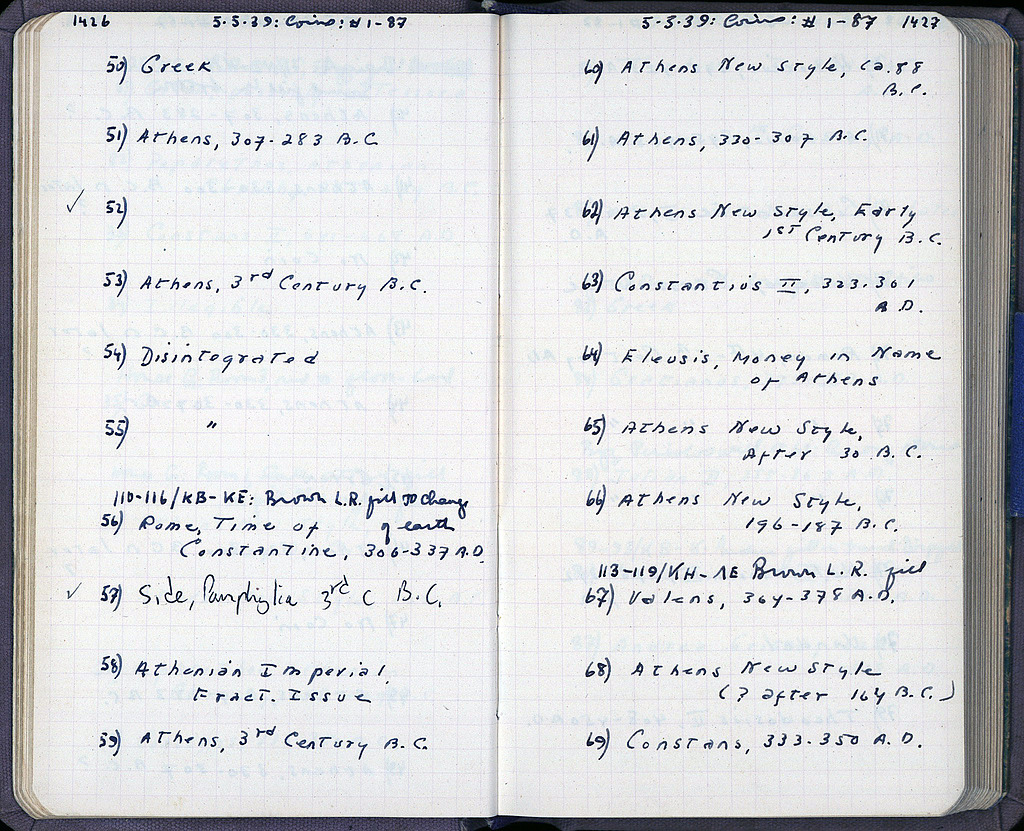 1426 5-5-39: Coins: # 1-87
50) Greek
51) Athens, 307-283 B.C
✓ 52)
53) Athens, 3rd Century B.C.
54) Disintegrated
55) "
110-116/KB-KE: Brown L.R. fill to change
of earth
56) Rome, Time of
Constantine, 306-337 A.D.
✓ 57) Side, Pamphylia 3rd C B.C.
58) Athenian Imperial,
Fract. Issue
59) Athens, 3rd Century B.C.
5-5-39: Coins: # 1-87 1427
60) Athens New Style, ca. 88
B.C.
61) Athens, 330-307 B.C.
62) Athens New Style, Early
1ST Century B.C.
63) Constantius II, 323-361
A.D.
64) Eleusis, Money in Name
of Athens
65) Athens New Style,
After 30 B.C.
66) Athens New Style,
196-187 B.C.
113-119/KH-ΛE Brown L.R. fill
67) Valens, 364-378 A.D.
68) Athens New Style
(? after 164 B.C.)
69) Constans, 333-350 A.D.